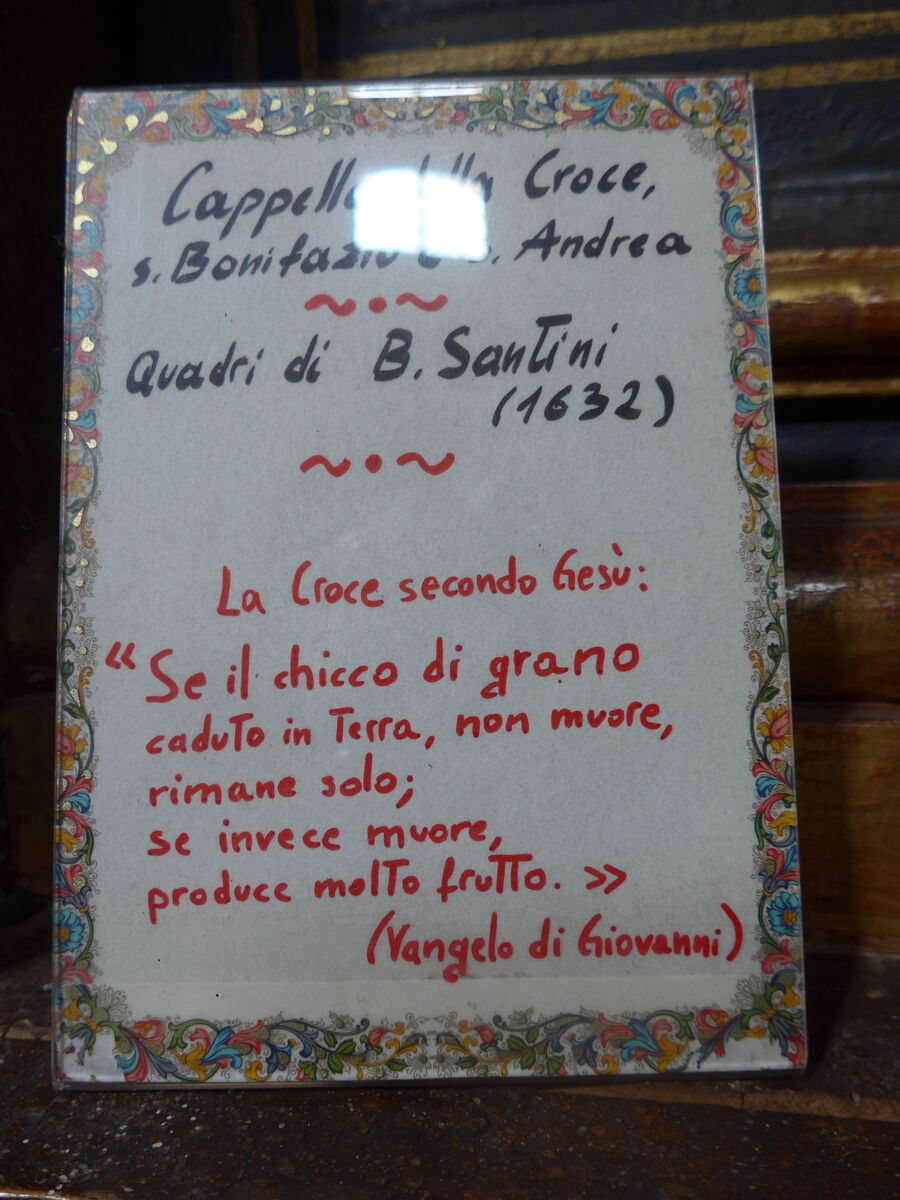 Cappella della Croce,
s. Bonifazio e s. Andrea
Quadri di B. Santini
(1632)
La Croce secondo Gesù:
« Se il chicco di grano
caduto in terra, non muore,
rimane solo;
se invece muore,
produce molto frutto. »
(Vangelo di Giovanni)